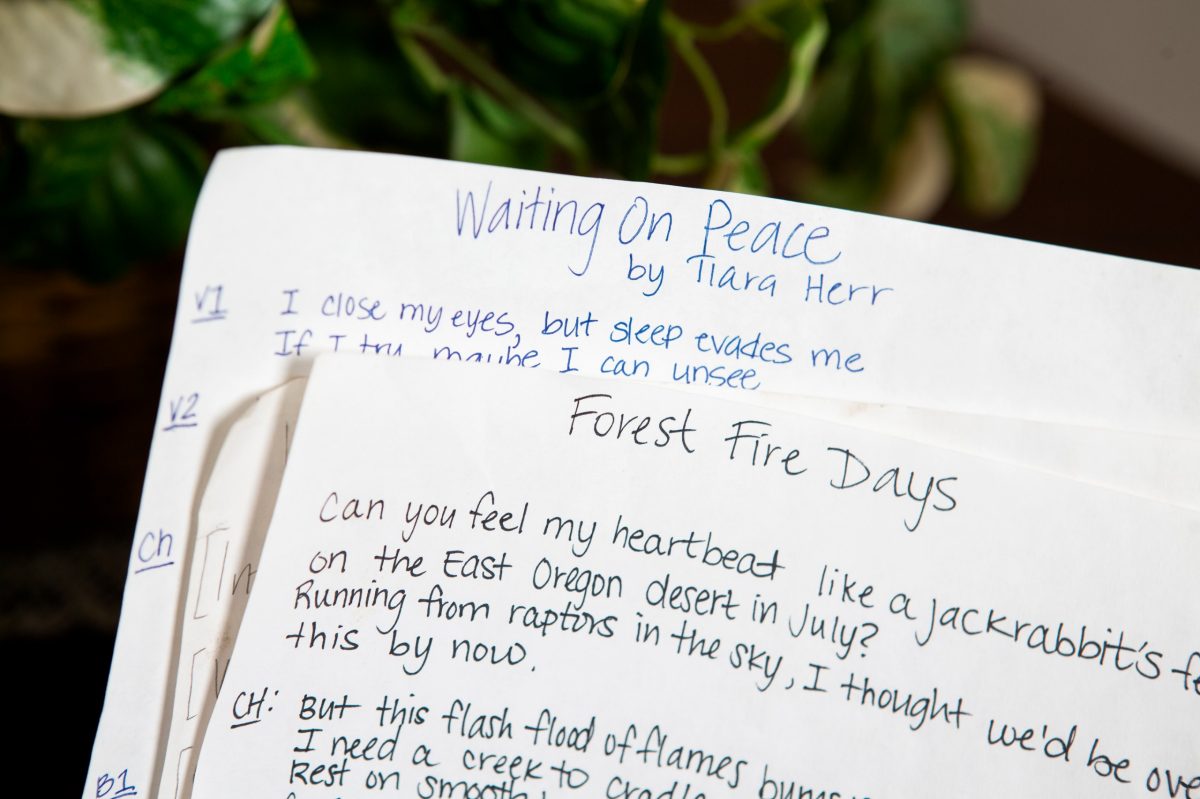 Waiting On Peace
by Tiara Herr
V1 I close my eyes, but sleep evades me
If I try maybe I can unsee
V2
Ch
B1
Forest Fire Days
Can you feel my heartbeat like a jackrabbit's
on the East Oregon desert in July?
Running from raptors in the sky, I thought we'd be
this by now.
CH: But this flash flood of flames
I need a creek to
Rest on smooth